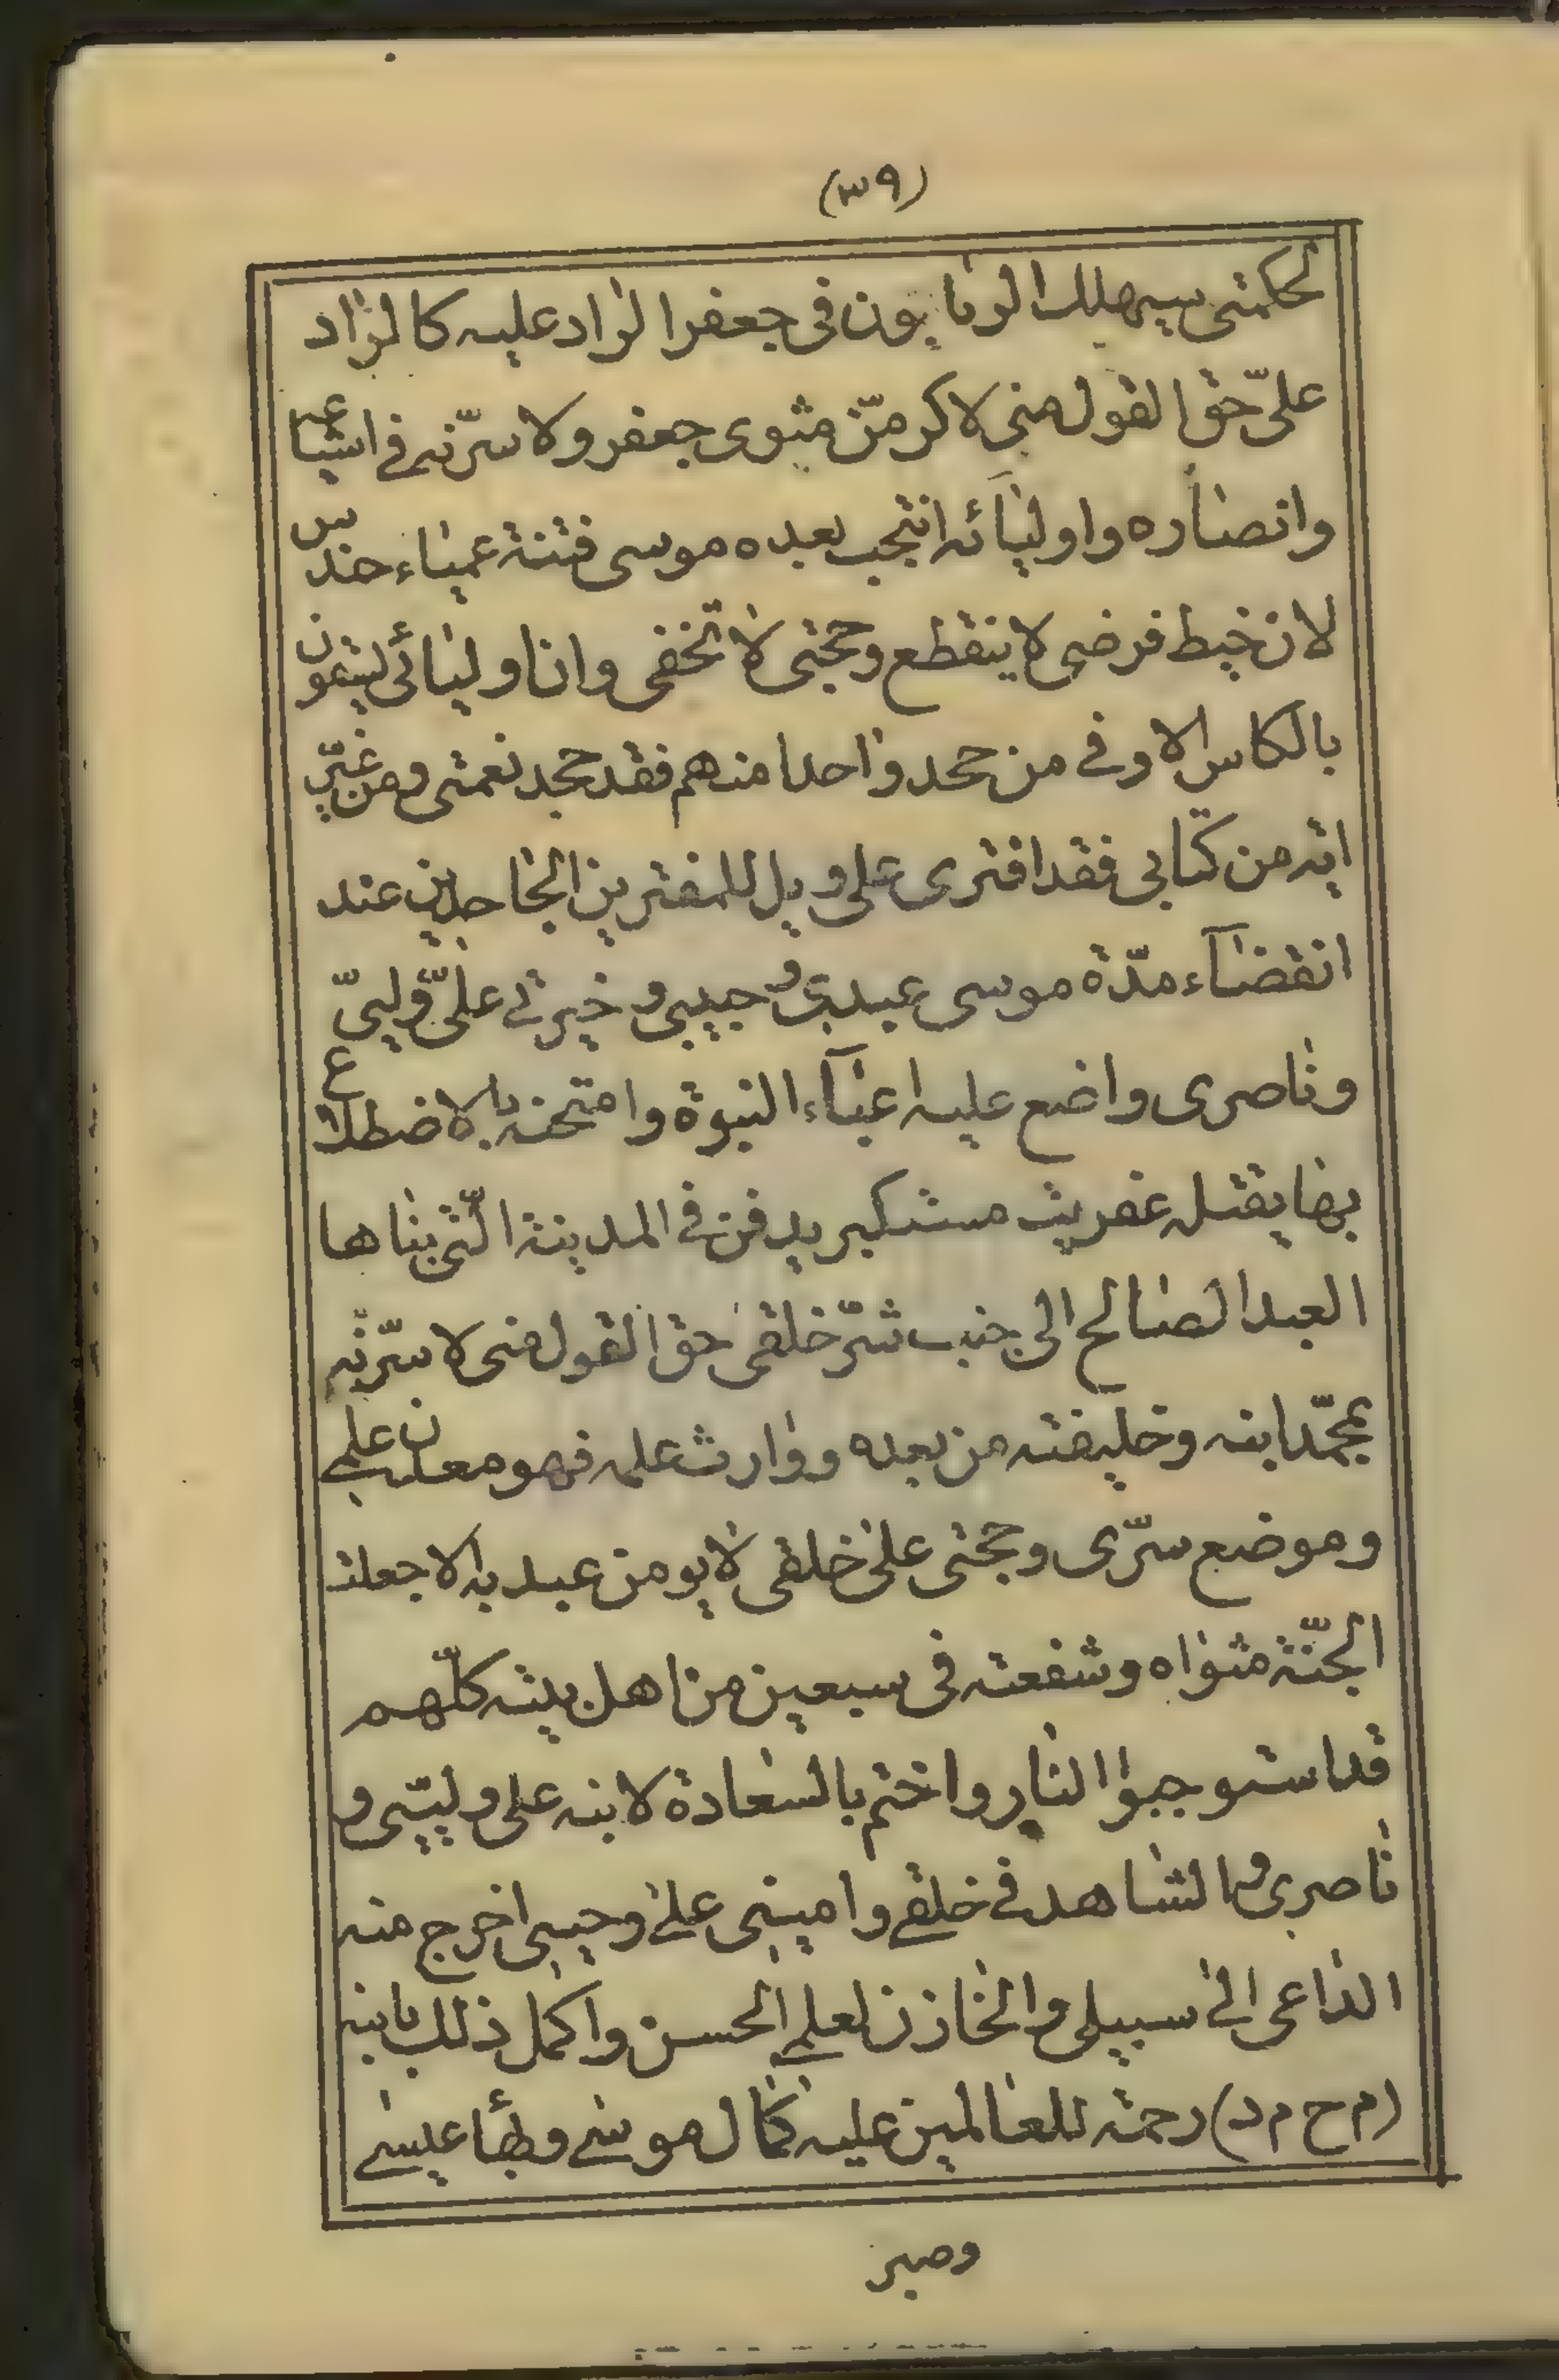 (٣٩)
لحكمتى سيهلك المرتابون فى جعفر الراد عليه كالراد
علىّ حق القول منى لاكرمنّ مثوى جعفر ولاسرّنه فى اشياعه
وانصاره واوليائه انتجب بعده موسى فتنة عمياء حندس
لان خيط فرضى لا ينقطع وحجتى لا تخفى وان اوليائى يسقون
بالكاس الاوفى من جحد واحدا منهم فقد جحد نعمتى ومن غيّر
اية من كتابى فقد افترى على ويل للمفترين الجاحدين عند
انقضآء مدّة موسى عبدى و حبيبى و خيرتى علىّ وليىّ
وناصرى واضع عليه اعبآء النبوة وامتحنه بالاضطلاع
بها يقتله عفريت مستكبر يدفن فى المدينة الّتى بناها
العبد الصالح الى جنب شرّ خلقى حق القول منى لاسرّنه
بمحمّد ابنه وخليفته من بعده ووارث علمه فهو معدن علمى
وموضع سرّى وحجتى على خلقى لا يومن عبد به الا جعلت
الجنّة مثواه وشفعته فى سبعين من اهل بيته كلّهم
قد استوجبوا النار واختم بالسعادة لابنه على وليّى و
ناصرى والشاهد فى خلقى وامينى على وحيى اخرج منه
الداعى الى سبيلى والخازن لعلمى الحسن واكمل ذلك بابنه
(م ح م د) رحمة للعالمين عليه كمال موسى وبهأ عيسى
وصبر